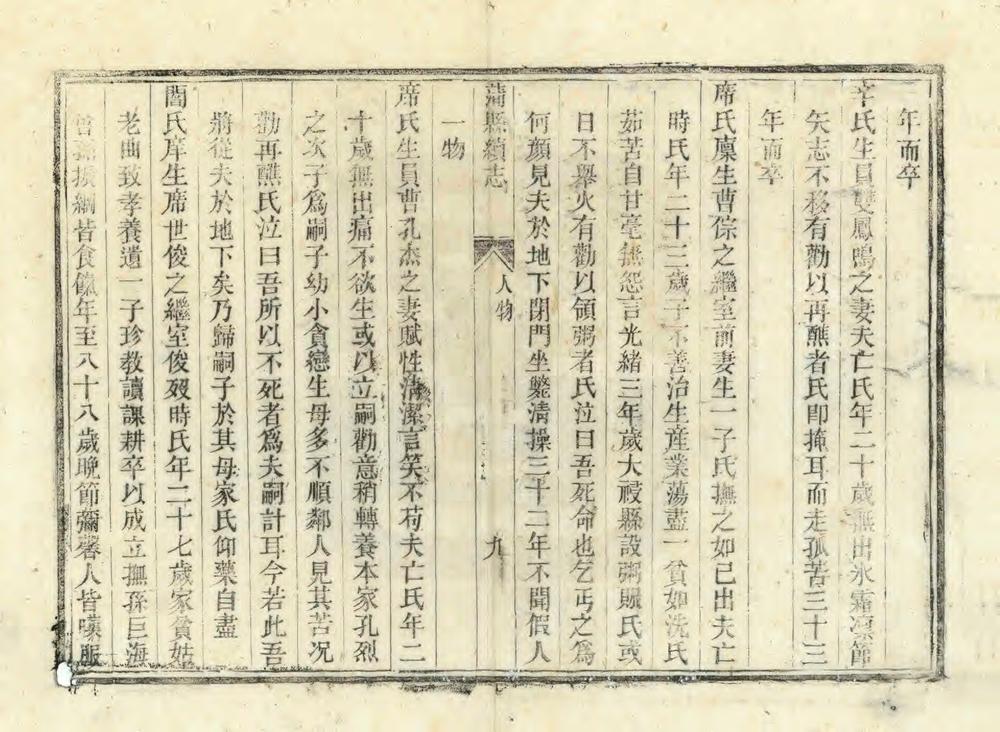 年而卒
辛氏生員雙鳳鳴之妻夫亡氏年二十歲無出氷霜凜節
矢志不移有勸以再醮者氏卽掩耳而走孤苦三十三
年而卒
席氏廩生曹倧之繼室前妻生一子氏撫之如己出夫亡
時氏年二十三歲子不善治生産業蕩盡一貧如洗氏
茹苦自甘毫無怨言光緒三年歲大祲縣設粥賑氏或
日不舉火有勸以領粥者氏泣曰吾死命也乞丐之爲
何顏見夫於地下閉門坐斃淸操三十二年不聞假人
蒲縣續志 人物 九
一物
席氏生員曹孔杰之妻賦性淸潔言笑不苟夫亡氏年二
十歲無出痛不欲生或以立嗣勸意稍轉養本家孔烈
之次子爲嗣子幼小貪戀生母多不順鄰人見其苦况
勸再醮氏泣曰吾所以不死者爲夫嗣計耳今若此吾
將從夫於地下矣乃歸嗣子於其母家氏仰藥自盡
閻氏庠生席世俊之繼室俊歿時氏年二十七歲家貧姑
老曲致孝養遺一子珍教讀課耕卒以成立撫孫巨海
曾孫振綱皆食餼年至八十八歲晚節彌馨人皆嘆服